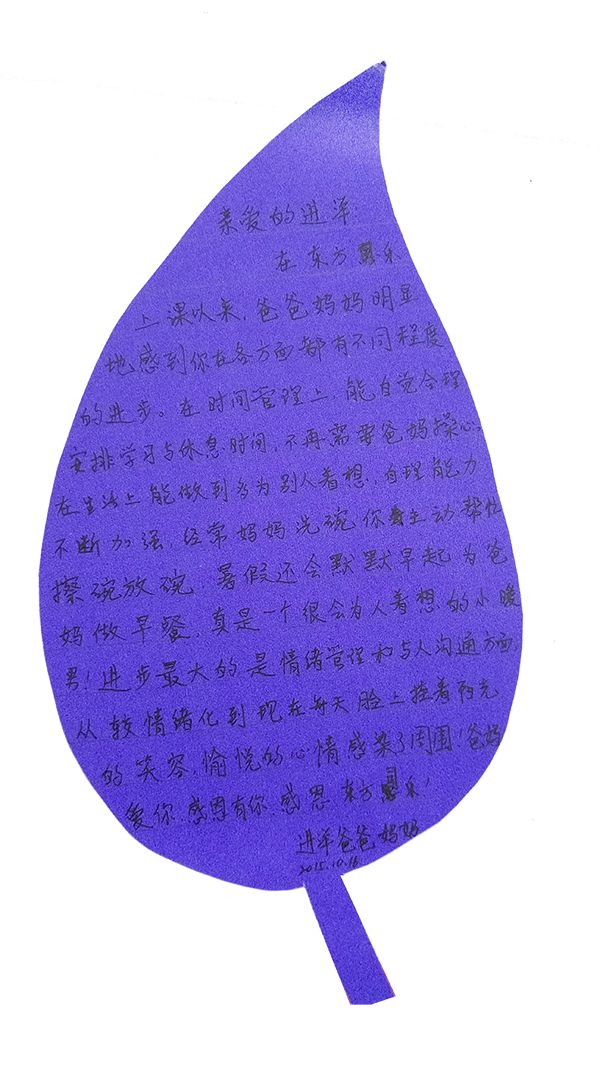 亲爱的进洋:
在东方 乐
上课以来,爸爸妈妈明显
地感到你在各方面都有不同程度
的进步。在时间管理上,能自觉合理
安排学习与休息时间,不再需要爸妈操心。
在生活上能做到多为别人着想,自理能力
不断加强,经常妈妈洗碗你 主动帮忙
擦碗放碗,暑假还会默默早起为爸
妈做早餐,真是一个很会为人着想的小暖
男!进步最大的是情绪管理和与人沟通方面,
从较情绪化到现在每天脸上挂着阳光
的笑容,愉悦的心情感染了周围!爸妈
爱你,感恩有你,感恩东方 乐!
进洋爸爸妈妈
2015.10.16